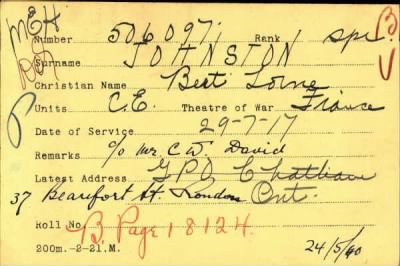 MEH
Number 506097 Rank spr. B
Surname JOHNSTON
Christian Name Bert Lorne
Units C.E. Theatre of War France
Date of Service 29-7-17
Remarks c/o Mr C.W. David
Latest Address GPO Chatham
37 Beaufort St. London Ont.
Roll No B. Page 18124.
200m.-2-21.M. 24/5/40